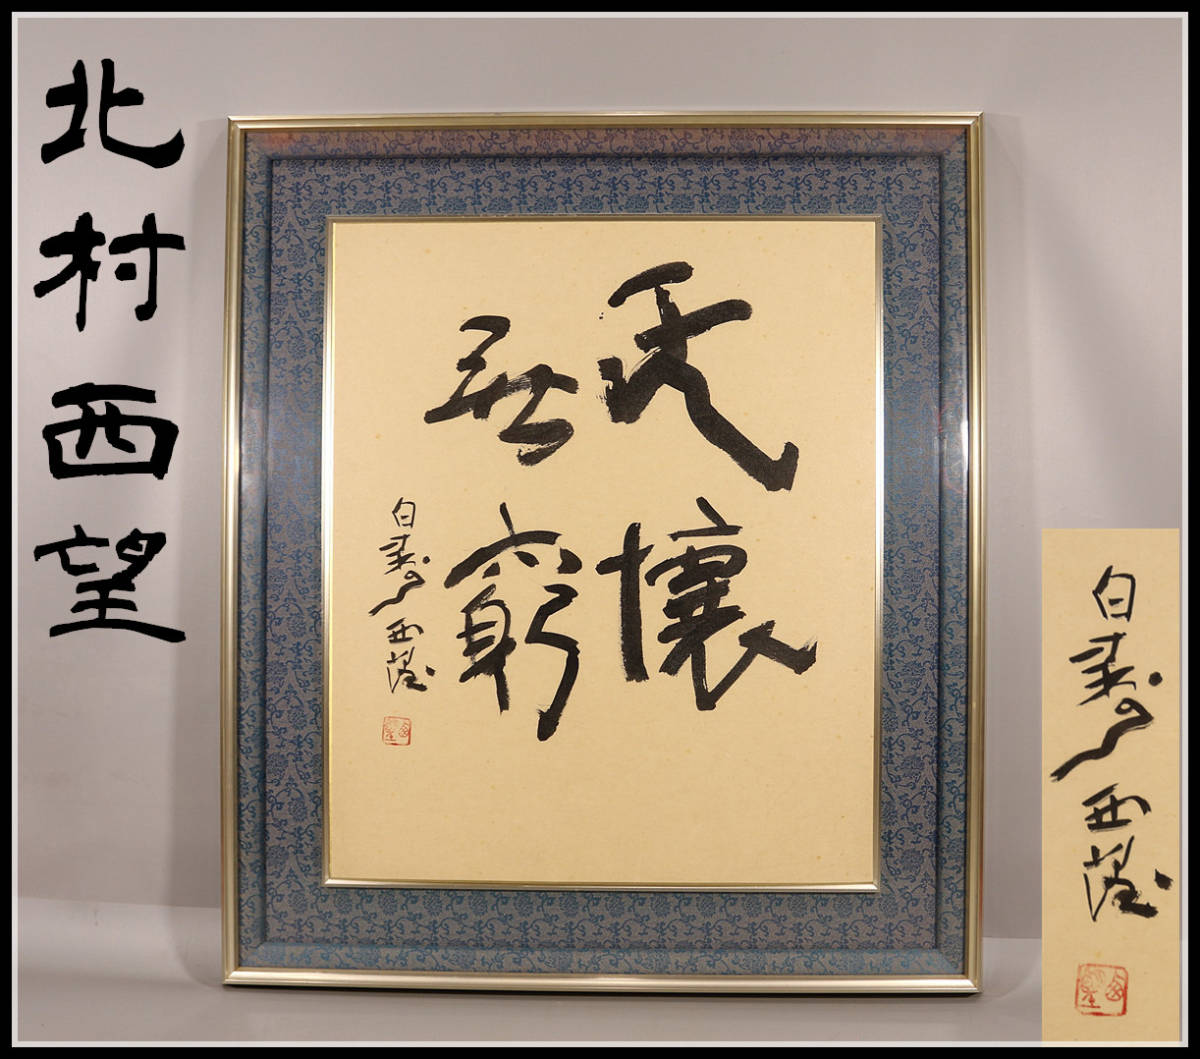 北村西望
天懐
無窮
白寿
西望
白寿
西望